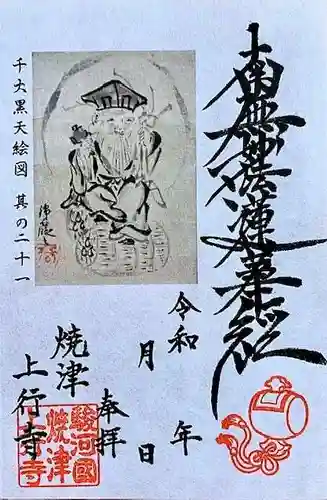 南無妙法蓮華経
千大黒天絵図 其の二十一
令和 年
月 日
奉拝
焼津
上行寺
駿河國
焼津
上行寺